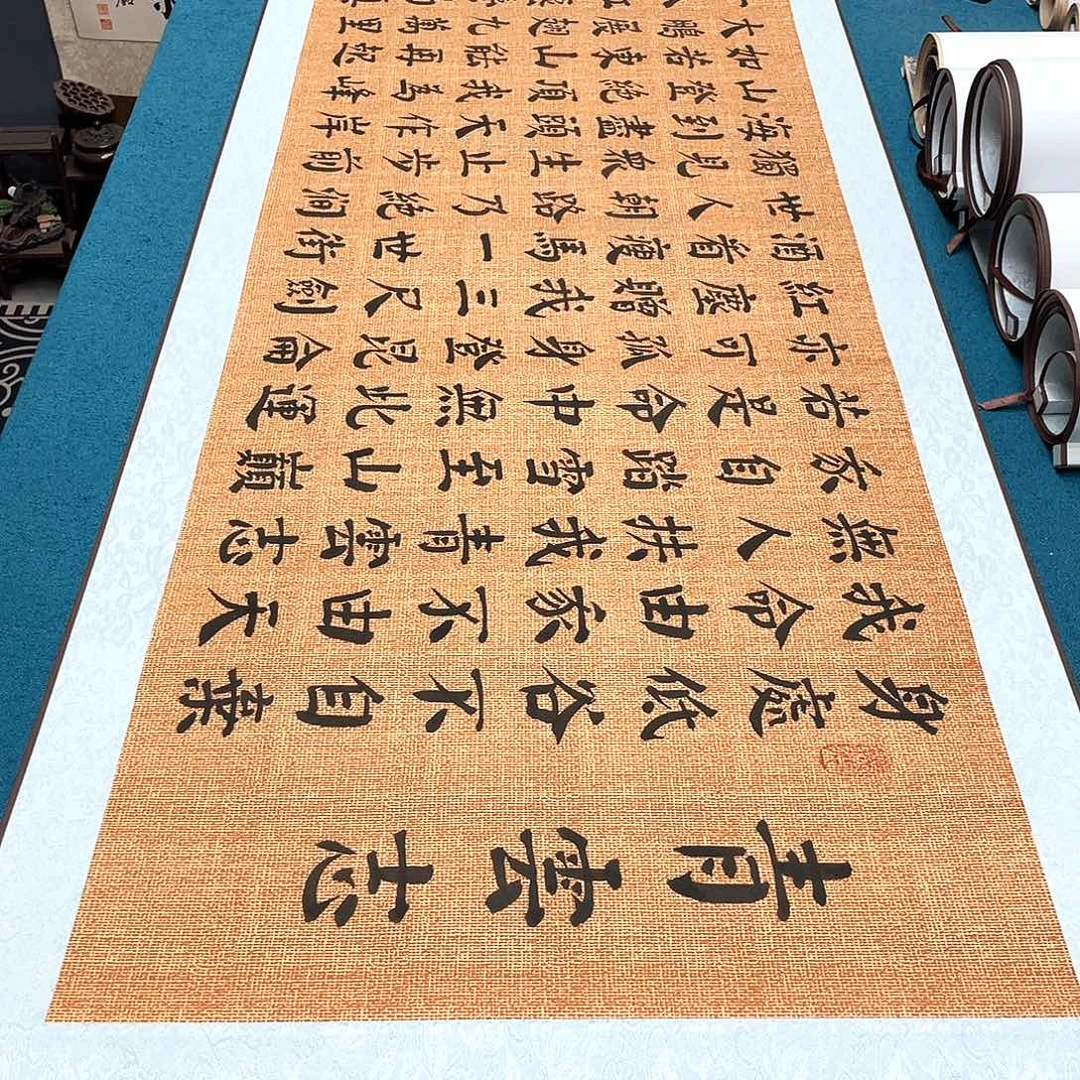 青雲志
身處低谷不自棄
我命由家不由天
無人扶我青雲志
家自踏雪至山巔
若是命中無此運
亦可孤身登昆侖
紅塵贈我三尺劍
酒着瘦馬一世街
世人朝路乃絕
獨見衆生止步前
海到盡頭天作岸
山登絕頂我爲峰
如若東山能再起
大鵬展翅九萬里